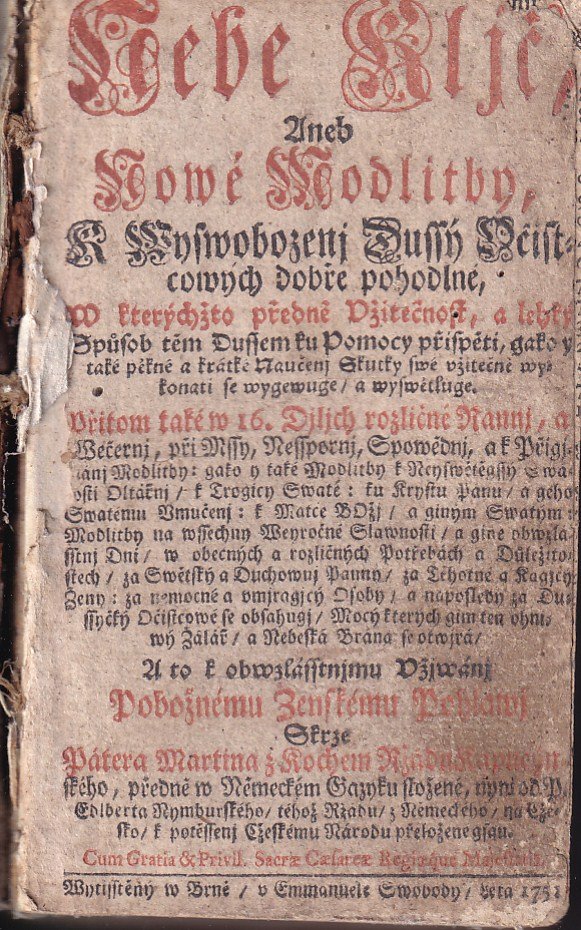 Nebe Kljč,
Aneb
Nowé Modlitby,
K Wyswobozenj Dussý Očist-
cowých dobře pohodlné,
W kterýchžto předně Vžitečnost, a lehký
Spůsob těm Dussem ku Pomocy přispěti, gako y
také pěkné a krátké Naučenj Skutky swé vžitečně wy-
konati se wygewuge / a wyswětluge.
Přitom také w 16. Djljch rozličné Rannj, a
Wečernj, při Mssy, Nesspornj, Spowědnj, a k Přigj-
manj Modlitby: gako y také Modlitby k Neyswětěgssy Swá-
osti Oltářnj / k Trogicy Swaté: ku Krystu Panu / a geho
Swatému Vmučenj: k Matce BOžj / a giným Swatým:
Modlitby na wssechny Weyročné Slawnosti / a giné obwzlá-
sstnj Dni / w obecných a rozličných Potřebách a Důležito-
stech / za Swětský a Duchownj Panny / za Těhotné a Kagjcy
Ženy: za nemocné a vmjragjcý Osoby / a naposledy za Du-
ssyčky Očistcowé se obsahugj / Mocý kterých gim ten ohni-
wý Žalář / a Nebeská Brána se otwjrá /
A to k obwzlásstnjmu Vžjwánj
Pobožnému Ženskému Pohlawj
Skrze
Pátera Martina z Kochem Ržádu Kapucyn-
ského, předně w Německém Gazyku složené, nynj od P.
Edlberta Nymburského / téhož Ržádu / z Německého / na Cže-
sko / k potěssenj Cžeskému Národu přeložene gsau.
Cum Gratia & Privil. Sacræ Cæsareæ Regiæque Majestatis.
Wytisstěný w Brně / v Emmanuele Swobody / Léta 1751